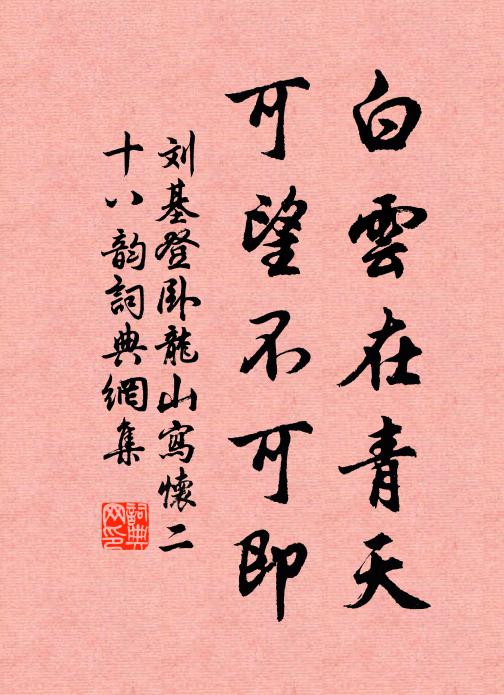 白雲在青天
可望不可即
刘基登卧龍山寫懷二
十八韵詞典網集
詞典
网印